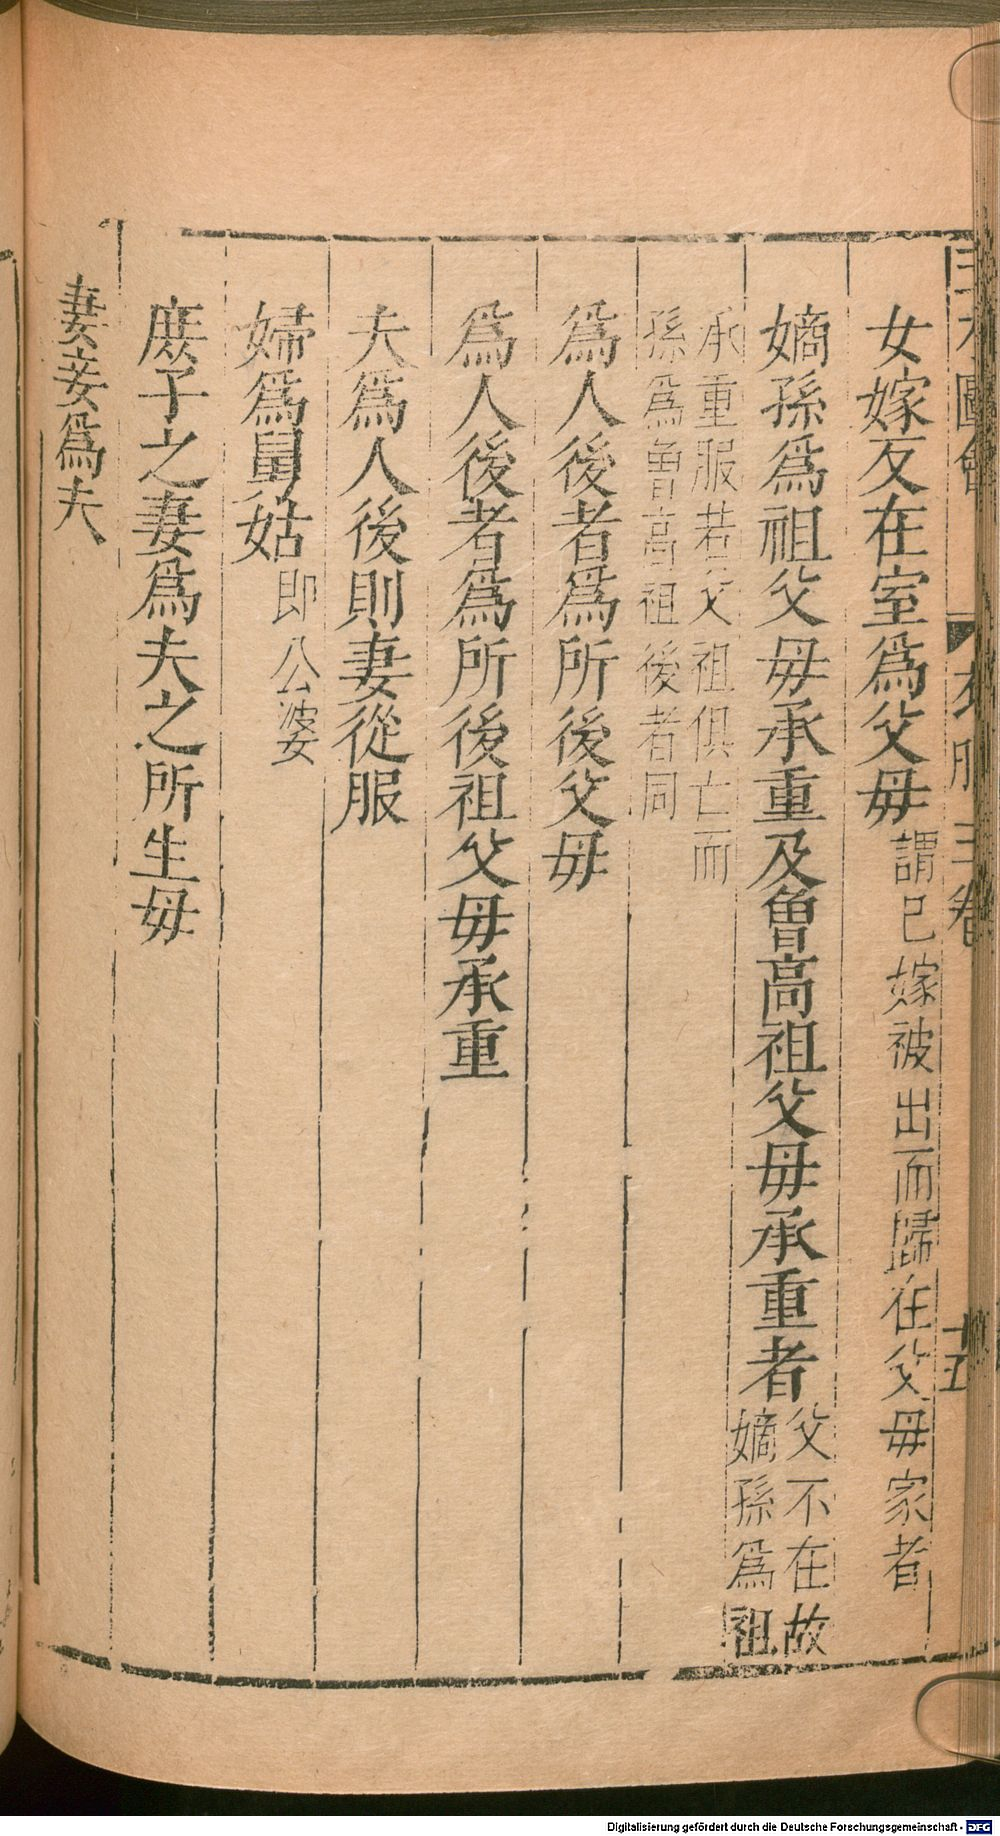 三才圖會 衣服三卷 十五
女嫁反在室爲父母謂已嫁被出而歸在父母家者
嫡孫爲祖父母承重及曾高祖父母承重者父不在故嫡孫爲祖
承重服若父祖俱亡而
孫爲曾高祖後者同
爲人後者爲所後父母
爲人後者爲所後祖父母承重
夫爲人後則妻從服
婦爲舅姑即公婆
庶子之妻爲夫之所生母
妻妾爲夫
Digitalisierung gefördert durch die Deutsche Forschungsgemeinschaft - DFG